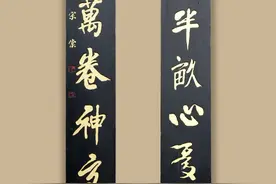 半畝心憂
萬卷神交
宗棠